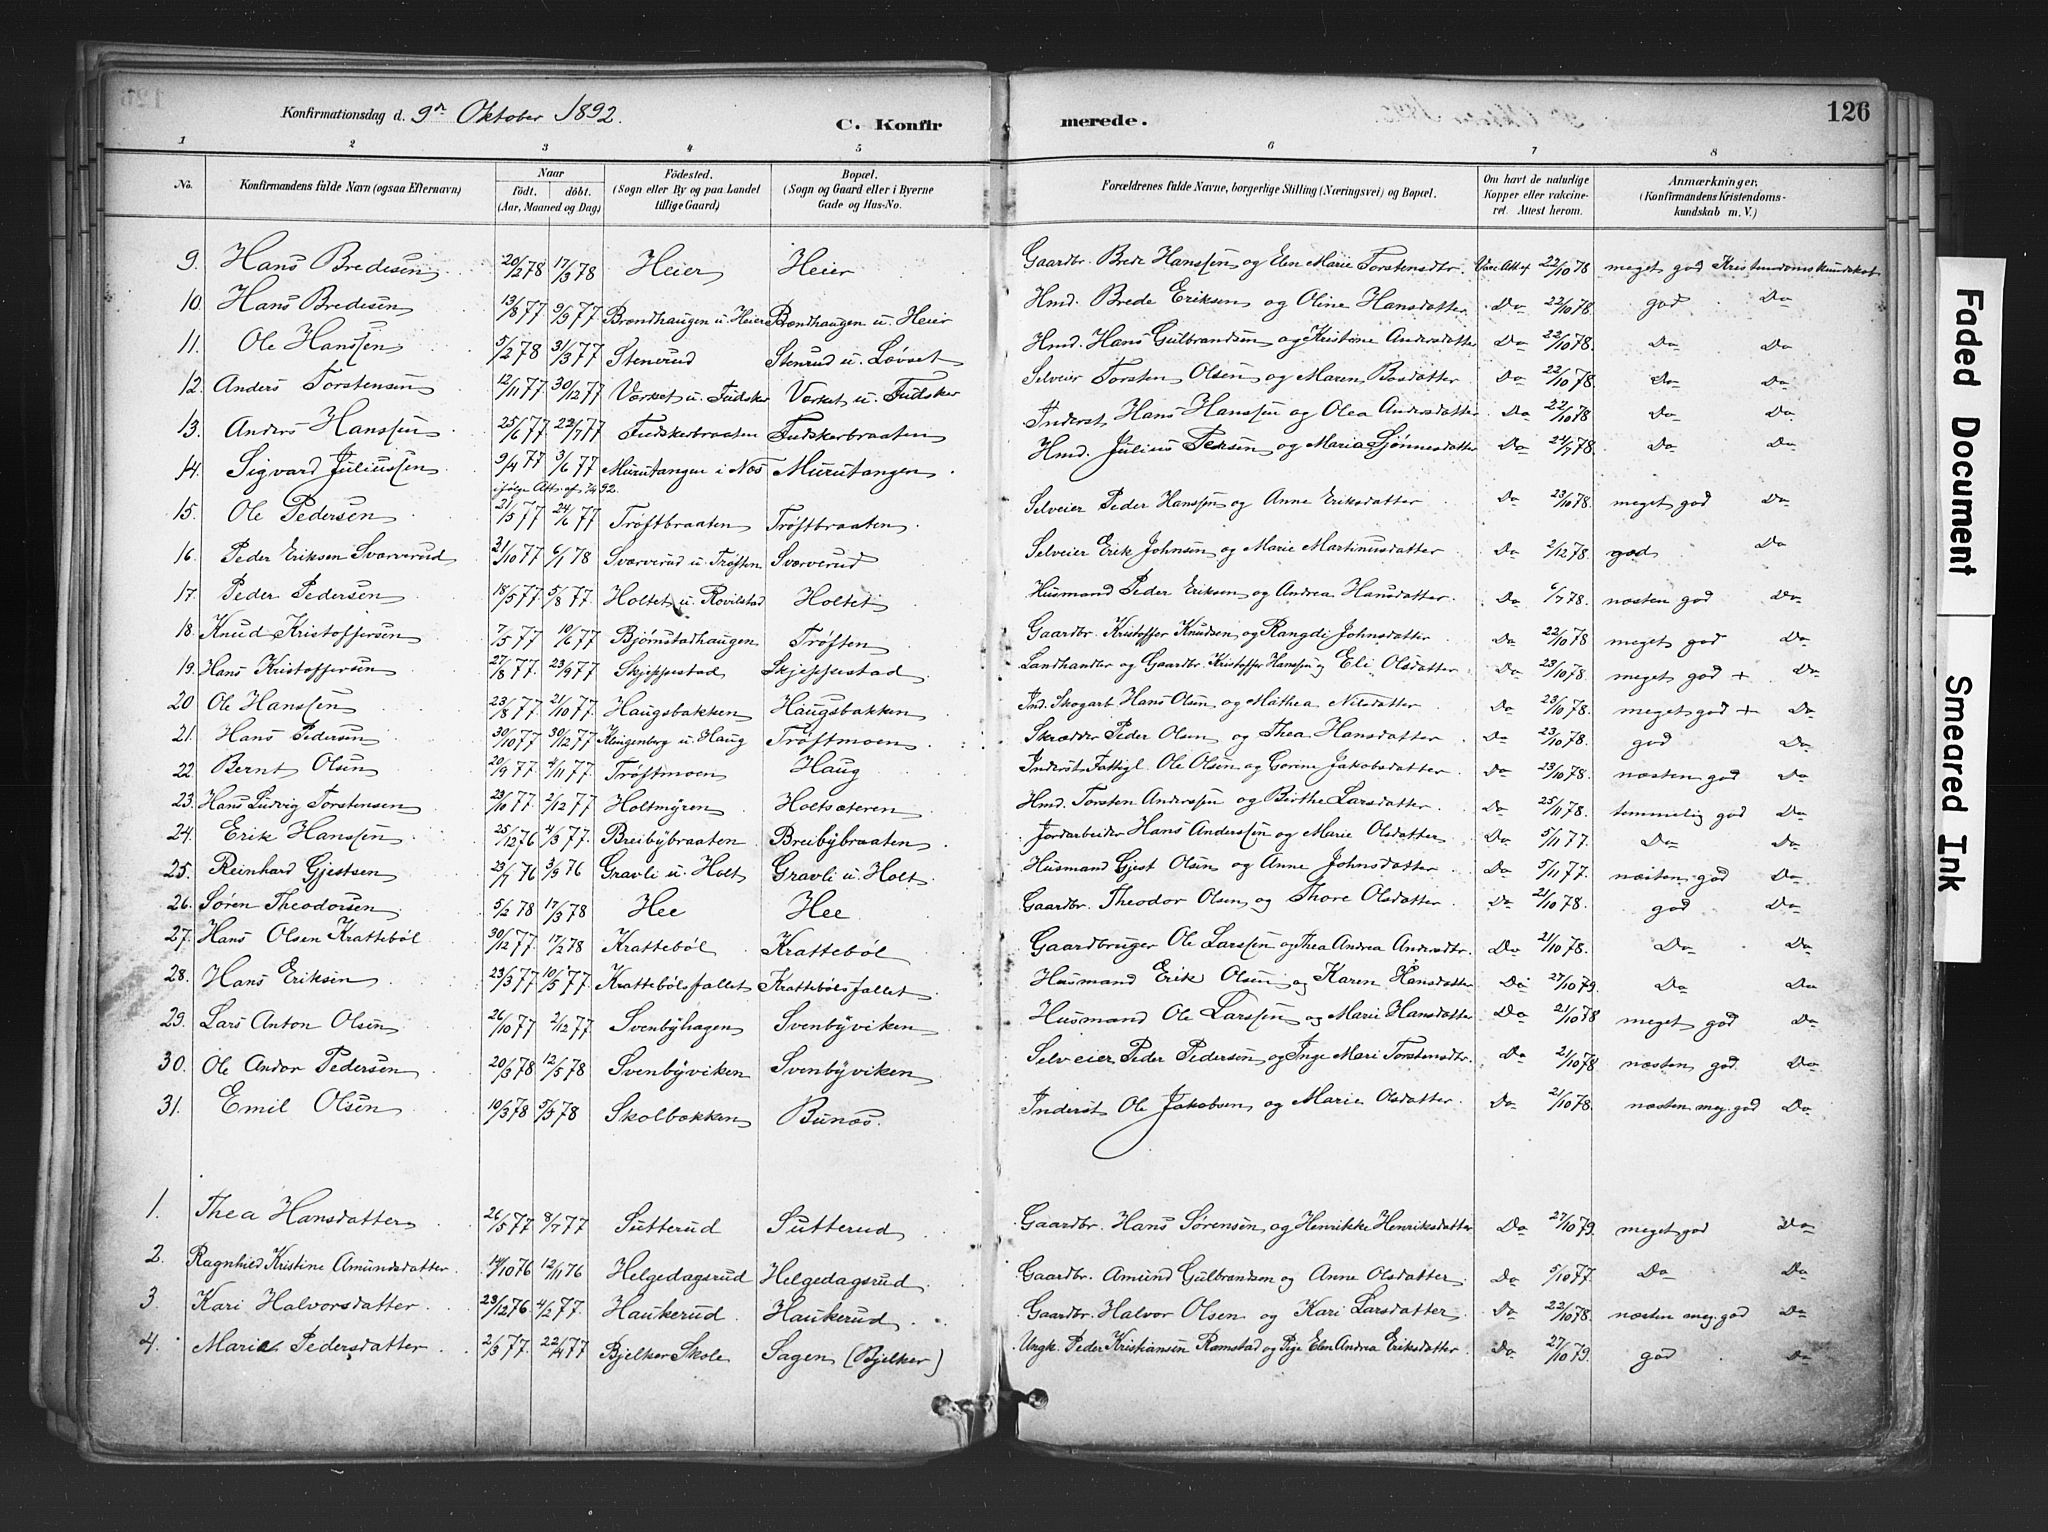 Konfirmationsdag d. 9de Oktober 1892. C. Konfirmerede. 126
1 2 3 4 5 6 7 8
No. Konfirmandens fulde Navn (ogsaa Efternavn) Naar født. døbt. (Aar, Maaned og Dag) Fødested. (Sogn eller By og paa Landet tillige Gaard) Bopæl. (Sogn og Gaard eller i Byerne Gade og Hus-No. Forældrenes fulde Navne, borgerlige Stilling (Næringsvei) og Bopæl. Om havt de naturlige Kopper eller vakcineret. Attest herom. Anmærkninger. (Konfirmandens Kristendomskundskab m. V.)
9. Hans Bredesen 20/2 78 17/3 78 Heier Heier Gaardbr. Brede Hanssen og Elen Marie Torstensdtr. Vacc. Att. af 22/10 78 meget god Kristendomskundskab
10. Hans Bredesen 13/8 77 9/9 77 Brændhaugen u. Heier Brændhaugen u. Heier Hmd. Brede Eriksen og Oline Hansdatter Do 22/10 78. god Do
11. Ole Hanssen 5/2 78 31/3 77 Stenrud Stenrud u. Løvset Hmd. Hans Gulbrandsen og Kristine Andersdatter Do 22/10 78. Do Do
12. Anders Torstensen 12/11 77 30/12 77 Værket u. Fudsker Værket u. Fudsker Selveier Torsten Olsen og Maren Bosdatter Do 22/10 78. Do Do
13. Anders Hanssen 25/6 77 22/7 77 Fudskerbraaten Fudskerbraaten Inderst Hans Hanssen og Olea Andersdatter Do 22/10 78 Do Do
14. Sigvard Juliussen 9/4 77 3/6 77 Murutangen i Næs Murutangen. Hmd. Julius Persen og Maria Sjønnesdatter Do 24/7 78. Do Do
ifølge Att. af 7/4 92.
15. Ole Pedersen 21/5 77 24/6 77 Trøftbraaten Trøftbraaten. Selveier Peder Hanssen og Anne Eriksdatter Do 23/10 78. meget god Do
16. Peder Eriksen Sværverud 31/10 77 6/1 78 Sværverud u. Trøften Sværverud Selveier Erik Johnsen og Marie Martinusdatter Do 2/12 78. god Do
17. Peder Pedersen 18/5 77 5/8 77. Holtet u. Rovilstad Holtet Husmand Peder Eriksen og Andrea Hansdatter. Do 6/7 78. næsten god Do
18. Knud Kristoffersen 7/5 77 10/6 77 Bjømstadhaugen Trøften Gaardbr. Kristoffer Knudsen og Rangdi Johnsdatter Do 22/10 78 meget god Do
19. Hans Kristoffersen 27/8 77. 23/9 77 Skjeppestad Skjeppestad Landhandler og Gaardbr. Kristoffer Hanssen og Eli Olsdatter Do 23/10 78. meget god + Do
20 Ole Hanssen 23/8 77. 21/10 77. Haugsbakken Haugsbakken Ind. Skogarb. Hans Olsen og Mathea Nilsdatter Do 23/10 78. meget god + Do
21. Hans Pedersen 30/10 77 30/12 77 Klingenberg u. Haug Trøftmoen Skrædder Peder Olsen og Thea Hansdatter Do 23/10 78. god Do
22 Bernt Olsen 20/9 77 4/11 77. Trøftmoen Haug Inderst Fattigl. Ole Olsen og Gorine Jakobsdatter Do 23/10 78. næsten god Do
23. Hans Ludvig Torstensen 23/10 77. 2/12 77. Holtmyren Holtsæteren. Hmd. Torsten Anderssen og Birthe Larsdatter. Do 25/11 78. temmelig god Do
24. Erik Hanssen 25/12 76 4/3 77. Breibybraaten Breibybraaten Jordarbeider Hans Anderssen og Marie Olsdatter Do 5/11 77. Do Do
25. Reinhard Gjestsen 23/7 76 3/9 76 Gravli u. Holt Gravli u. Holt. Husmand Gjest Olsen og Anne Johnsdatter Do 5/11 77. næsten god Do
26. Søren Theodorsen 5/2 78 17/3 78 Hee Hee Gaardbr. Theodor Olsen og Thore Olsdatter Do 21/10 78. god Do
27. Hans Olsen Krattebøl 30/12 77. 17/2 78 Krattebøl Krattebøl Gaardbruger Ole Larssen og Thea Andrea Andersdtr. Do 21/10 78. Do Do
28. Hans Eriksen 23/3 77 10/5 77. Krattebølsfallet Krattebølsfallet Husmand Erik Olsen og Karen Hansdatter Do 27/10 79. Do Do
29. Lars Anton Olsen 26/10 77 2/12 77 Svenbyhagen Svenbyviken Husmand Ole Larssen og Marie Hansdatter Do 21/10 78 meget god Do
30. Ole Andor Pedersen 20/3 78 12/5 78 Svenbyviken Svenbyviken Selveier Peder Pedersen og Inge Mari Torstensdtr. Do 21/10 78 næsten god Do
31. Emil Olsen 10/3 78 5/5 78 Skolbækken Bunæs. Inderst Ole Jakobsen og Marie Olsdatter. Do 21/10 78. næsten meg. god Do
1. Thea Hansdatter 26/5 77 8/7 77 Sutterud Sutterud Gaardbr. Hans Sørensen og Henrikke Henriksdatter Do 27/10 79. meget god Do
2. Ragnhild Kristine Amundsdatter 14/10 76 12/11 76 Helgedagsrud Helgedagsrud Gaardbr. Amund Gulbrandsen og Anne Olsdatter Do 5/10 77. Do Do
3. Kari Halvorsdatter 23/12 76 4/2 77. Haukerud Haukerud Gaardbr. Halvor Olsen og Kari Larsdatter Do 22/10 78. næsten meg. god Do
4. Marie Pedersdatter 2/3 77. 22/4 77 Bjelker Skole Sagen (Bjelker) Ungk. Peder Kristiansen Ramstad og Pige Elen Andrea Eriksdatter. Do 27/10 79. god Do
Faded Document Smeared Ink